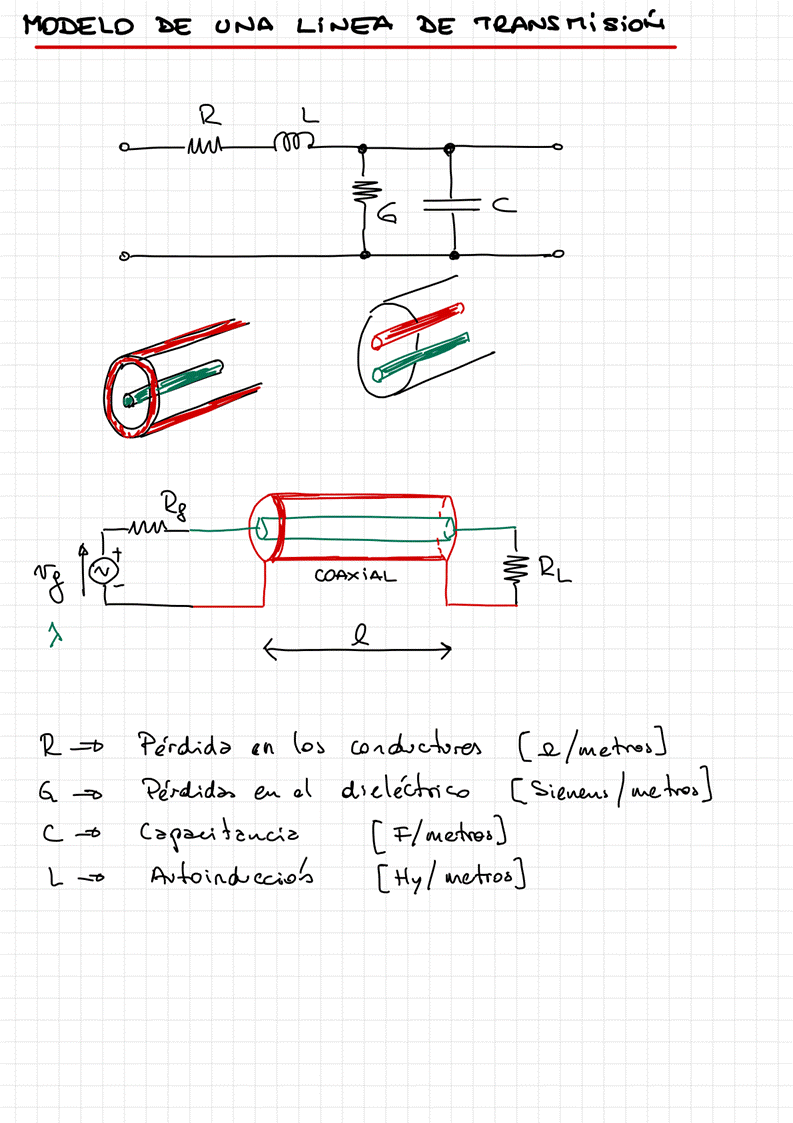 MODELO DE UNA LINEA DE TRANSMISIÓN
R L
G C
Rg
vg + -
COAXIAL
RL
λ
l
R ⇒ Pérdida en los conductores [Ω/metros]
G ⇒ Pérdidas en el dieléctrico [Siemens/metros]
C ⇒ Capacitancia [F/metros]
L ⇒ Autoinducción [Hy/metros]